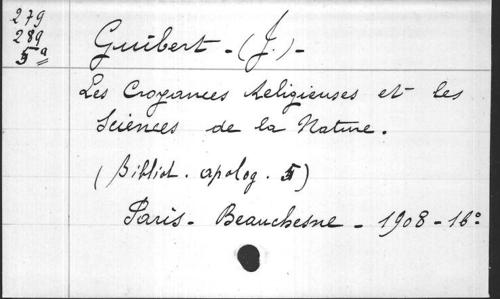 279
289
5a
Guibert - (J.) -
Les Croyances Religieuses et les
Sciences de la Nature.
(Bibliot. apolog. 5)
Paris - Beauchesne - 1908 - 16°